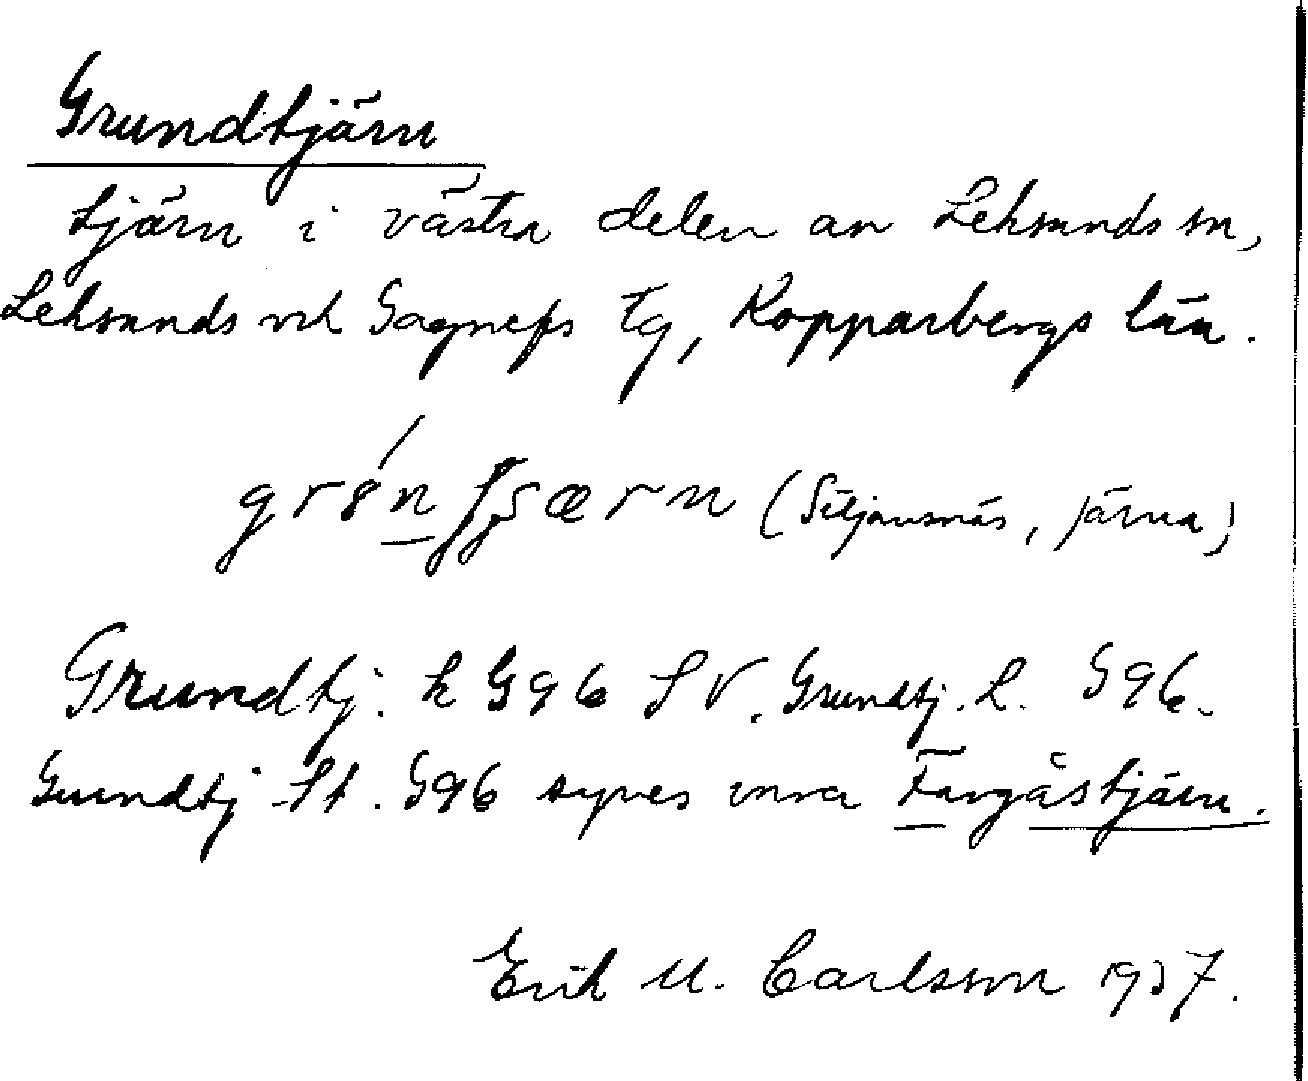 Grundtjärn
tjärn i västra delen av Leksands sn,
Leksands och Gagnefs tg, Kopparbergs län.
(Siljansnäs, Järna)
Grundtj. k G96 SV. Grundtj. L. G96.
Grundtj St. G96 synes vara Fargåstjärn.
Erik M. Carlsson 1937.